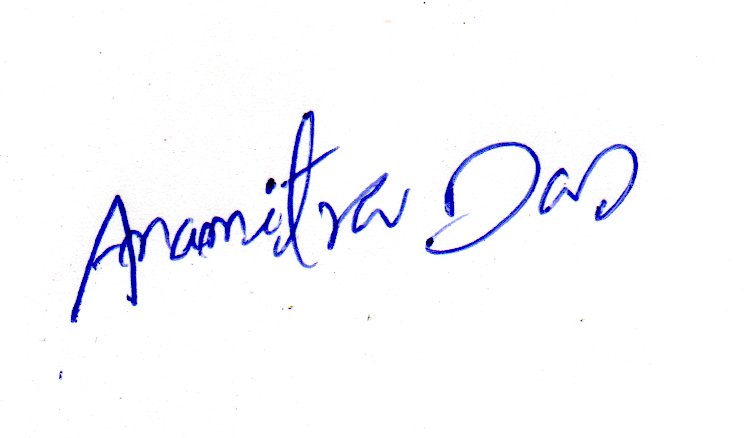 Anamitra Das